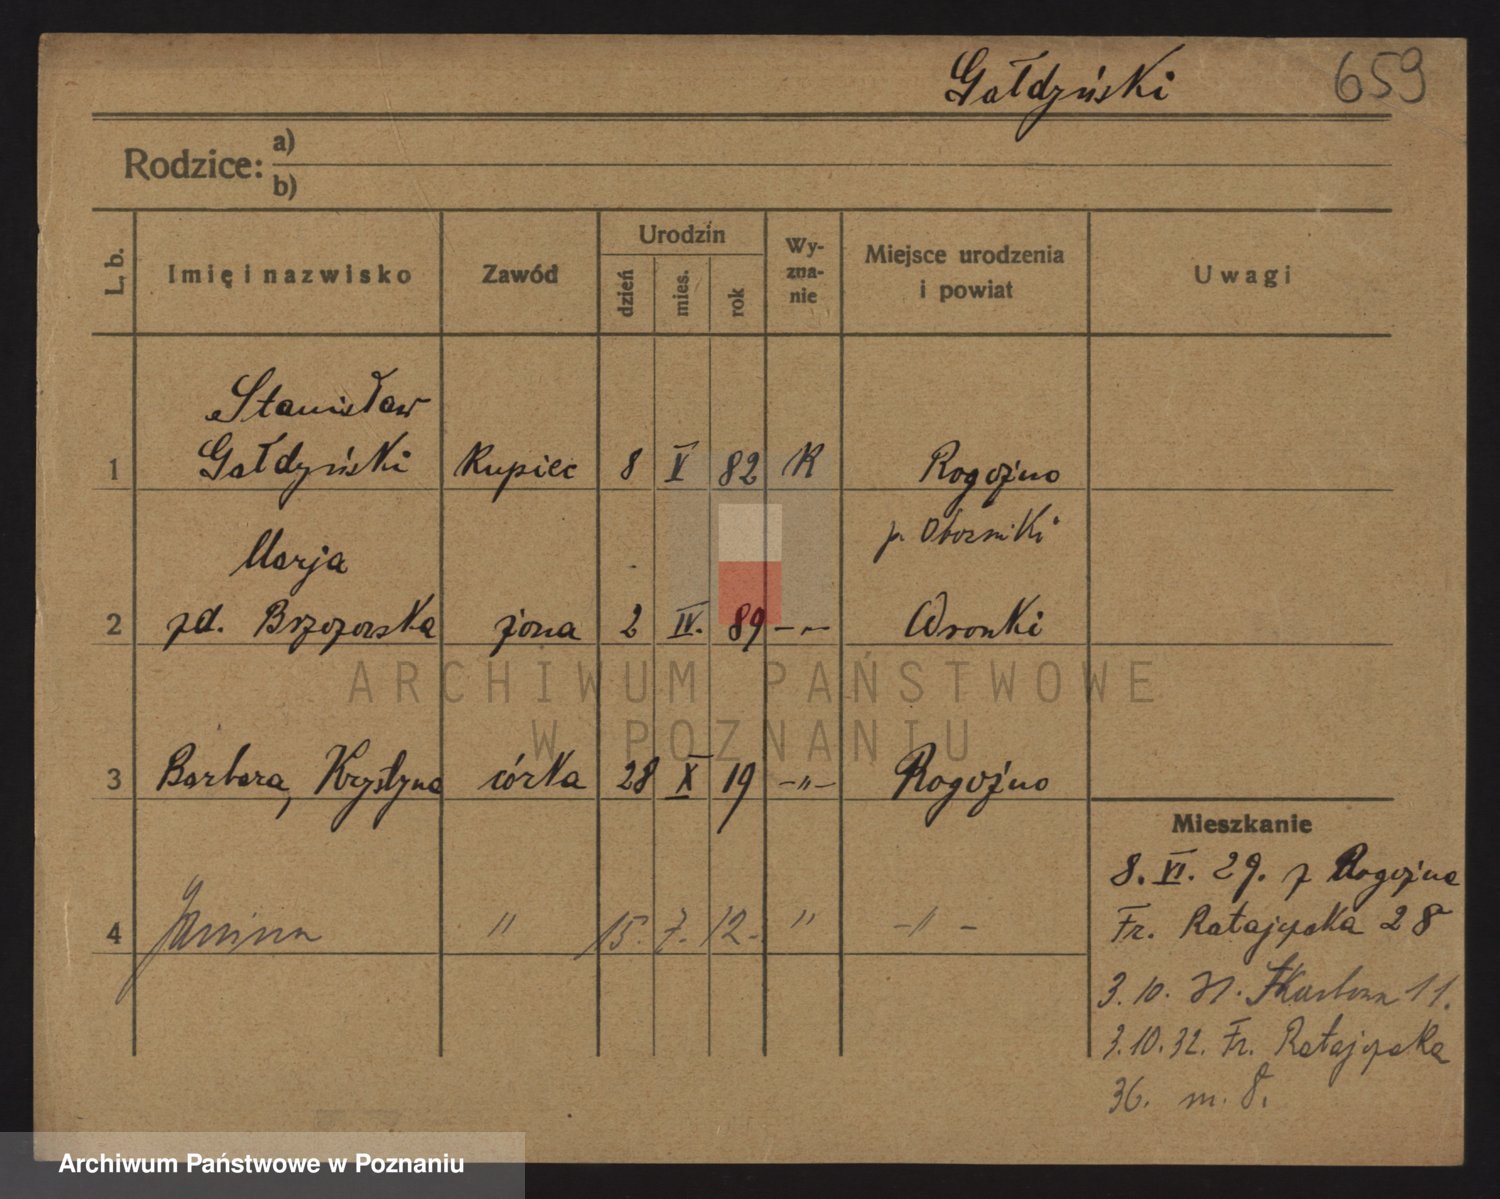 Gałdyński 659
Rodzice: a)
b)
L. b. Imię i nazwisko Zawód Urodzin dzień mies. rok Wy-zna-nie Miejsce urodzenia i powiat Uwagi
Stanisław
1 Gałdyński Kupiec 8 V 82 K Rogoźno
p. Oborniki
Marja
2 zd. Brzozowska żona 2 IV. 89 -„- Wronki
3 Barbara, Krystyna córka 28 X 19 -„- Rogoźno
4 Janina " 15. 7. 12. " -"-
Mieszkanie
8. VI. 29. z Rogoźna
Fr. Ratajczaka 28
3. 10. 31. Skarbowa 11.
3. 10. 32. Fr. Ratajczaka
36. m. 8.
ARCHIWUM PAŃSTWOWE
W POZNANIU
Archiwum Państwowe w Poznaniu